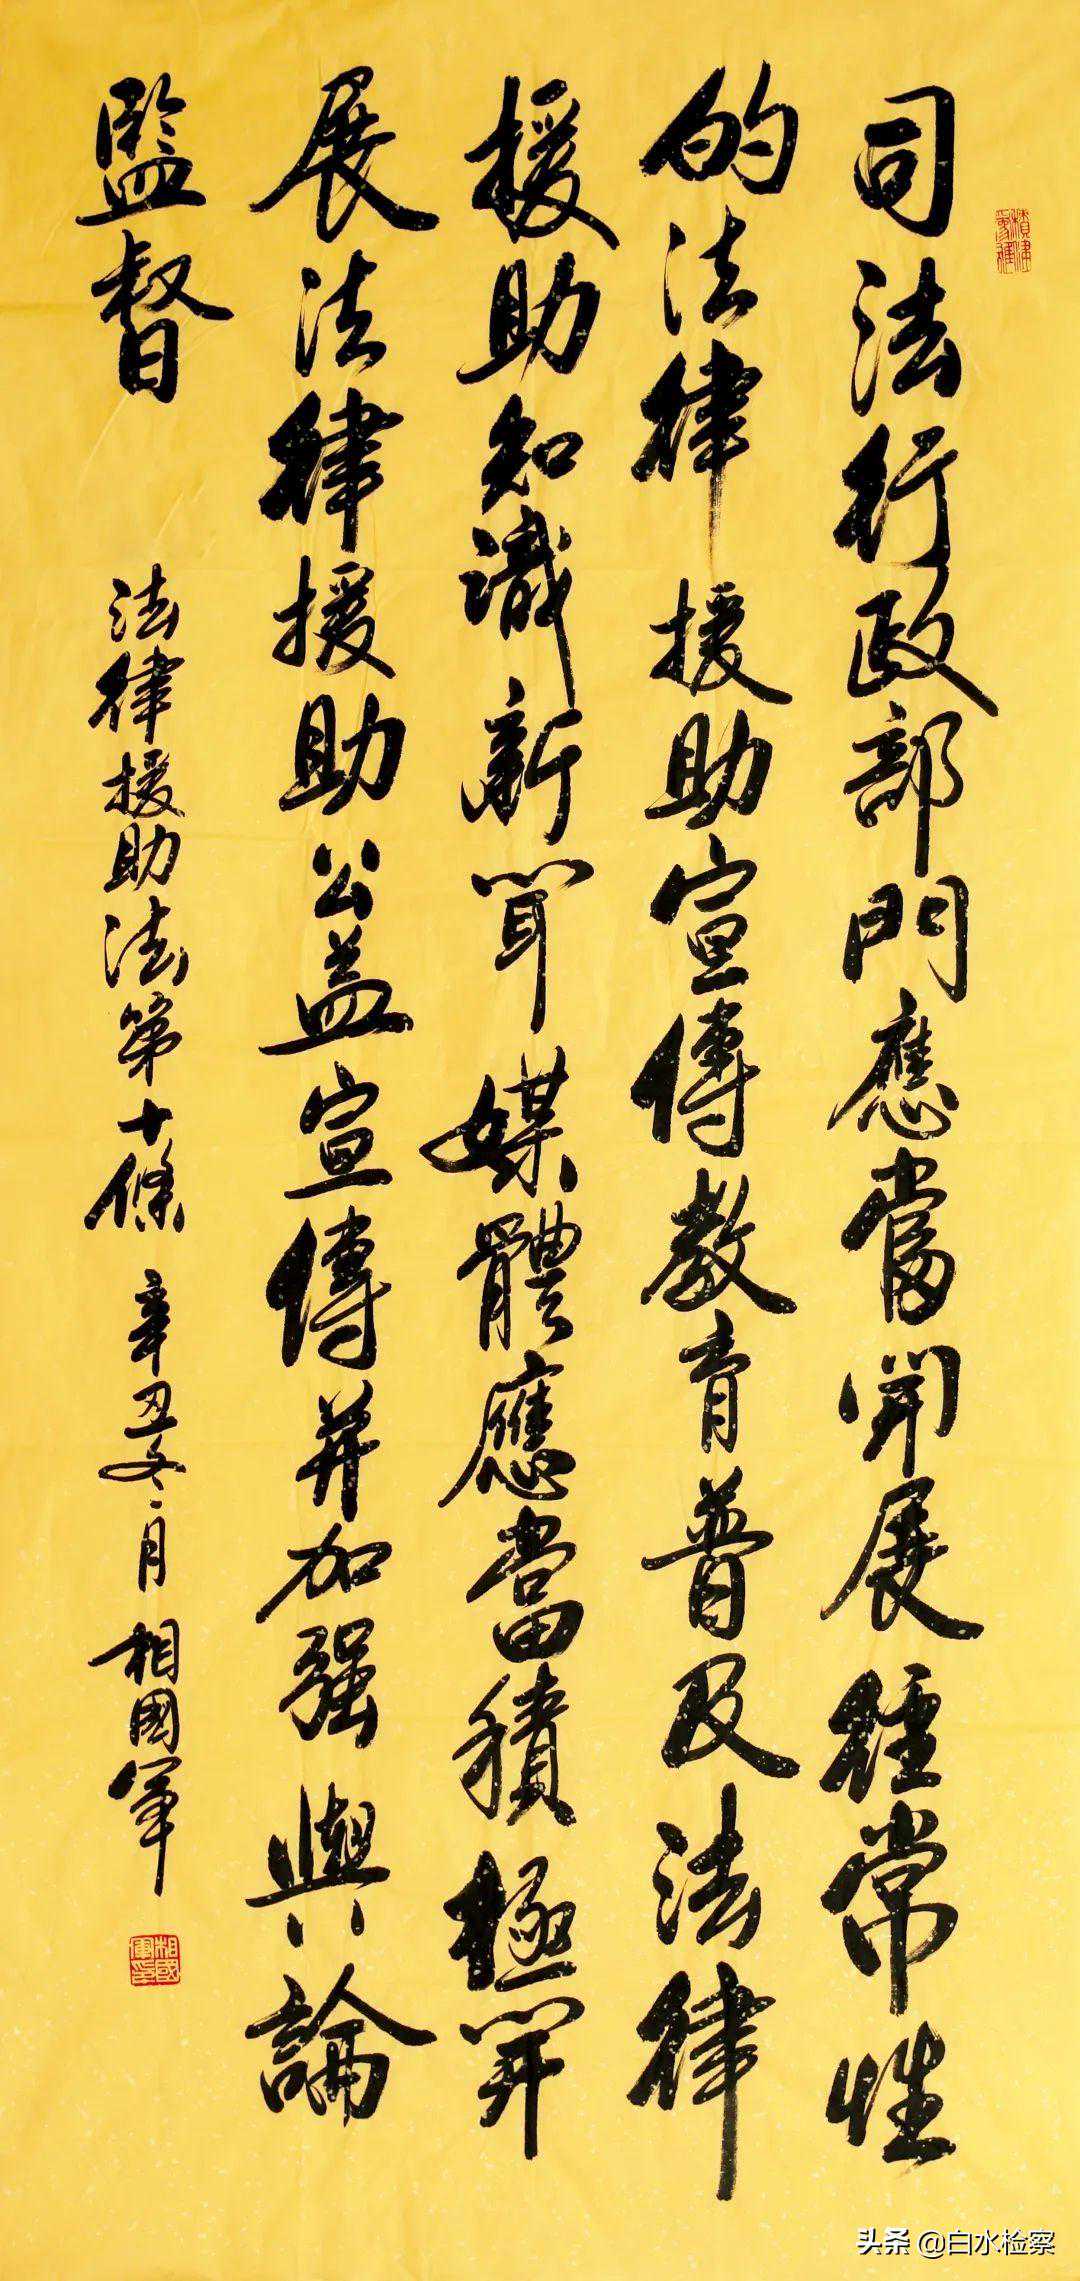 司法行政部門應當開展經常性
的法律援助宣傳教育普及法律
援助知識新聞媒體應當積極開
展法律援助公益宣傳并加强輿論
監督
法律援助法第十條 辛丑冬月 相國軍
相國軍印
头条 @白水检察